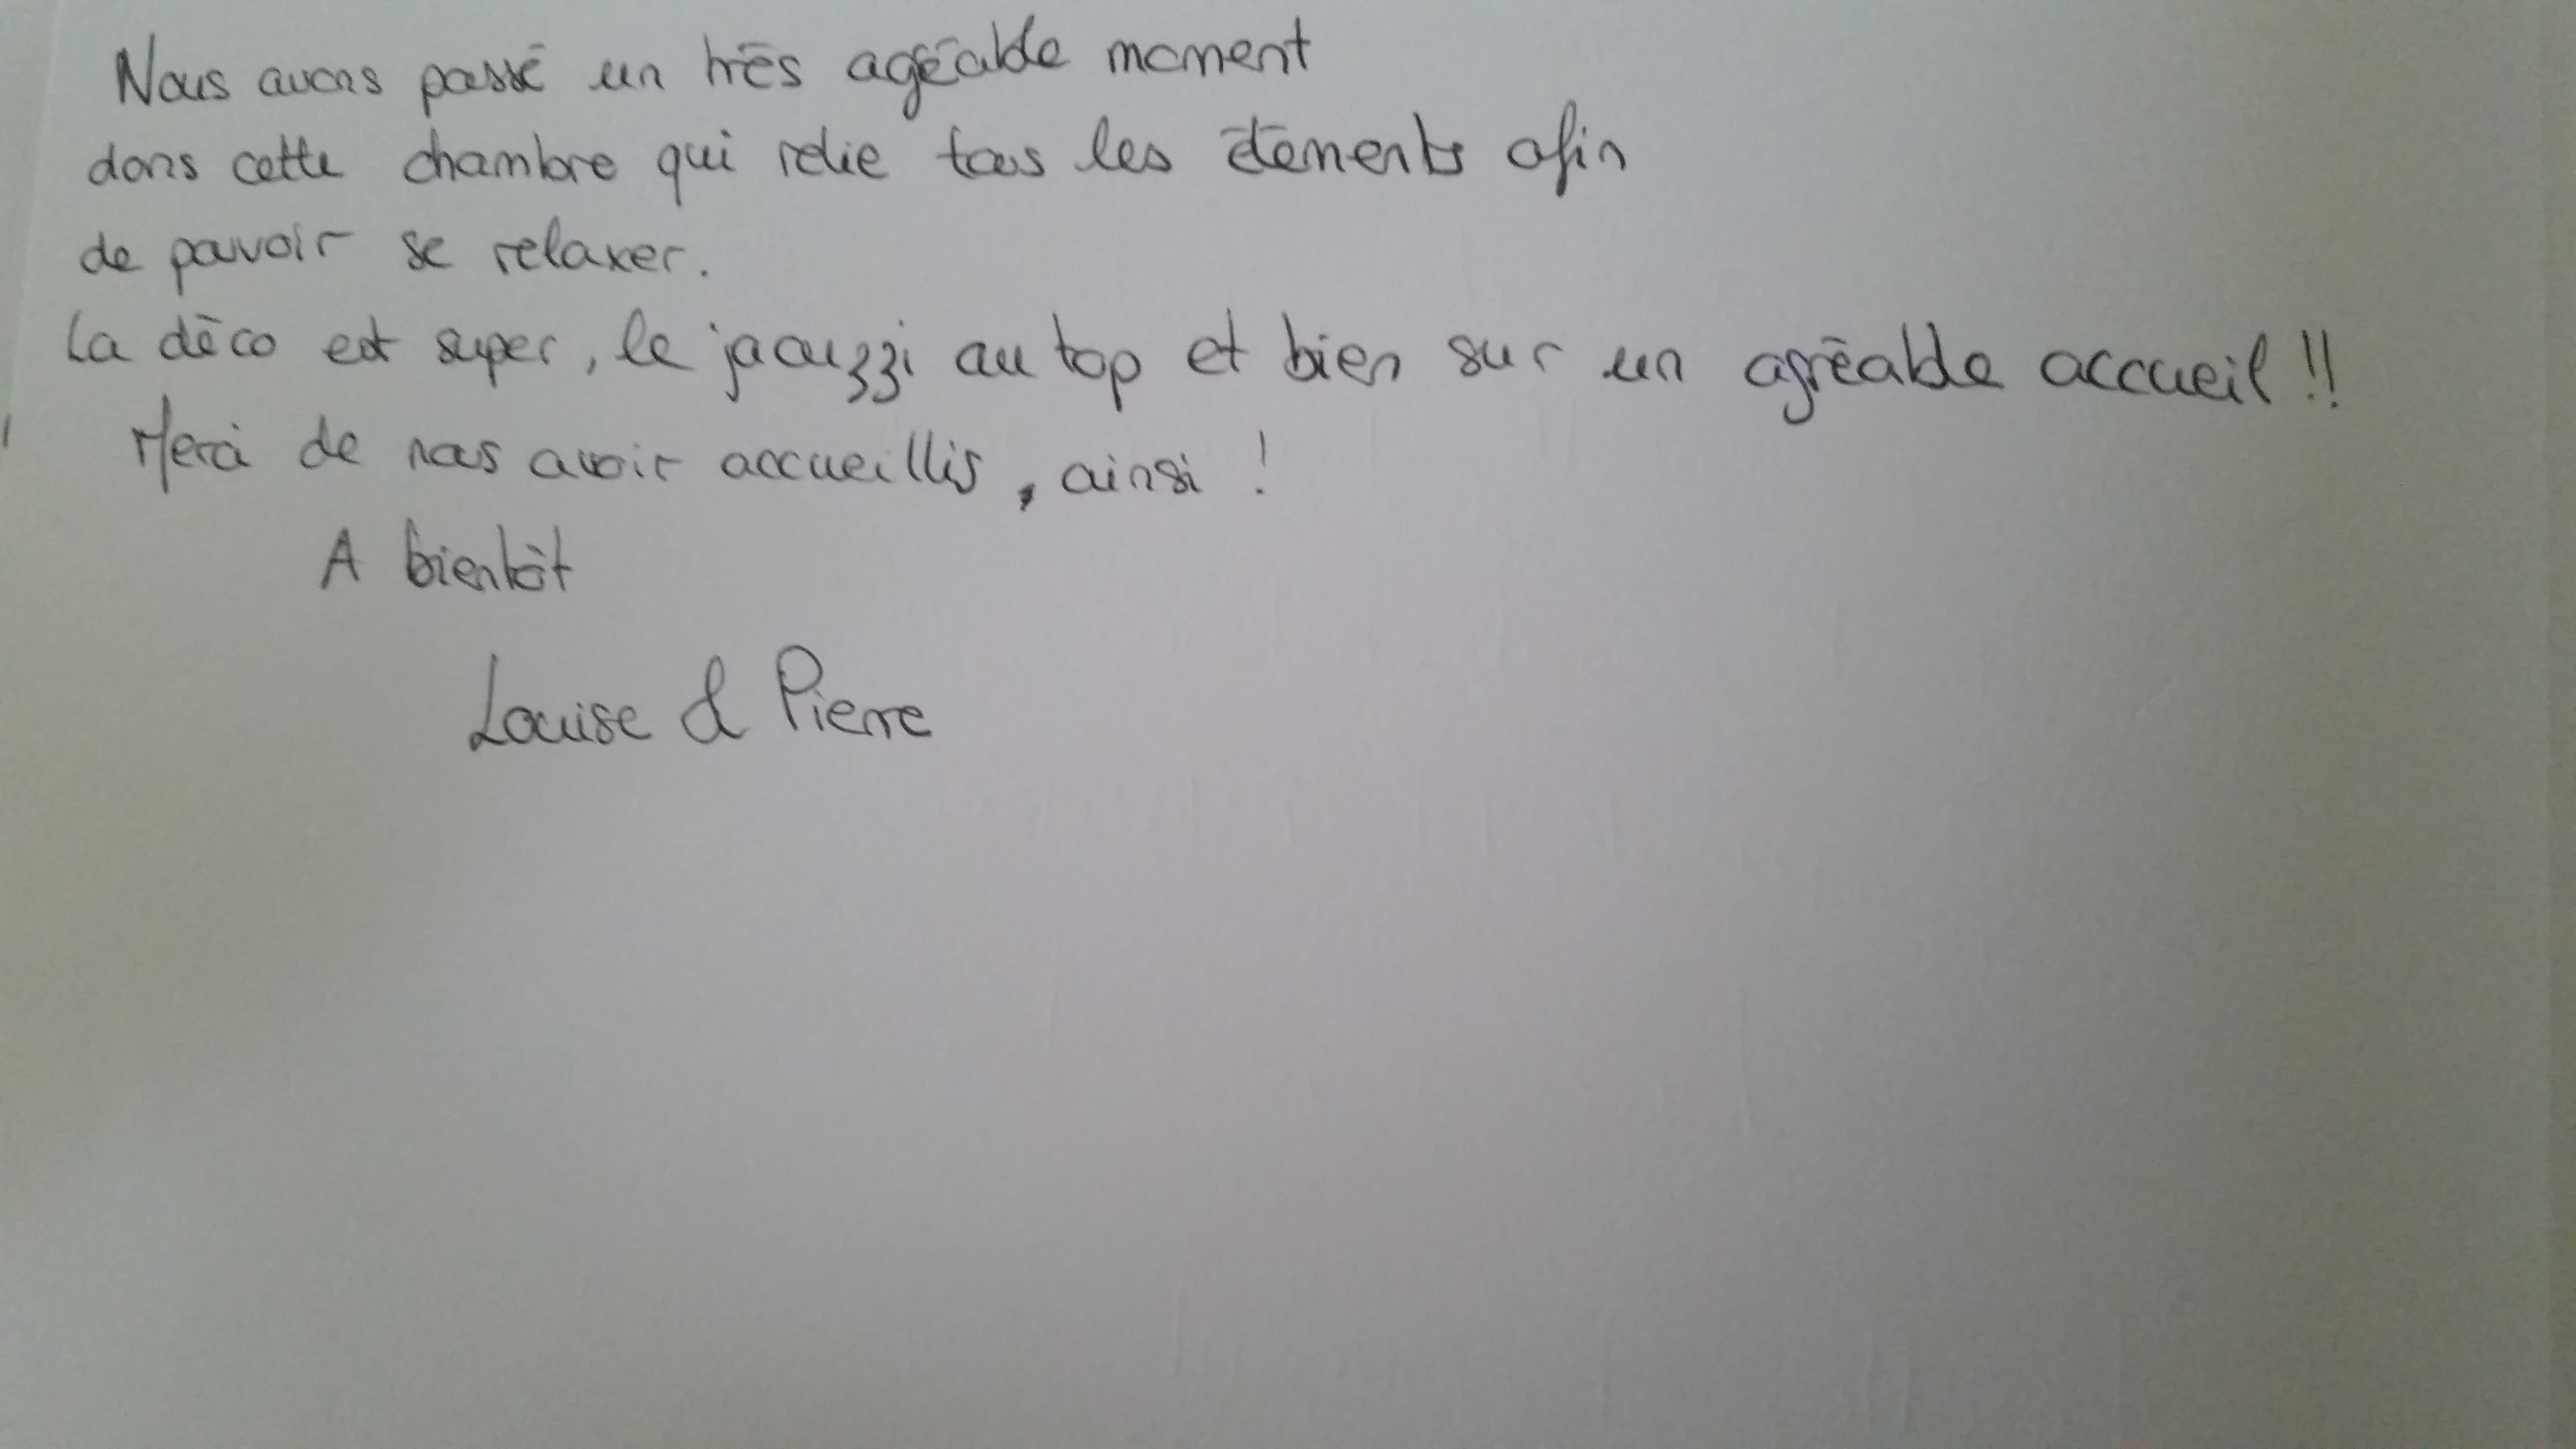 Nous avons passé un très agréable moment
dans cette chambre qui relie tous les éléments afin
de pouvoir se relaxer.
La déco est super, le jacuzzi au top et bien sur un agréable accueil !!
Merci de nous avoir accueillis, ainsi !
A bientôt
Louise & Pierre